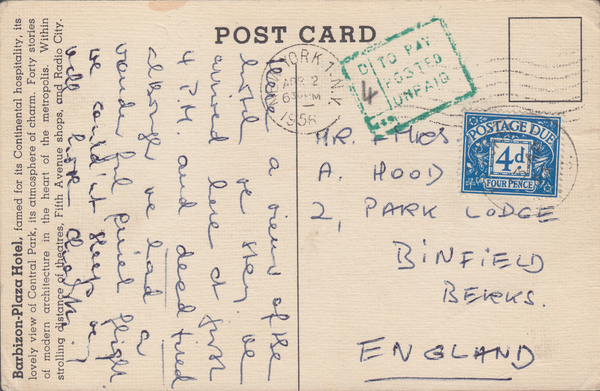 POST CARD
Barbizon-Plaza Hotel, famed for its Continental hospitality, its
lovely view of Central Park, its atmosphere of charm. Forty stories
of modern architecture in the heart of the metropolis. Within
strolling distance of theatres, Fifth Avenue shops, and Radio City.
a view of the
hotel we stay. We
arrived here at just
4 P.M. and dead tired
although we had a
wonderful quiet flight.
we couldn't sleep
well
YORK 1, N.Y.
APR 2
6 PM
1956
TO PAY
POSTED
UNPAID
D
4
POSTAGE DUE
4d.
FOUR PENCE
MR.
A. HOOD
2, PARK LODGE
BINFIELD
BERKS.
ENGLAND